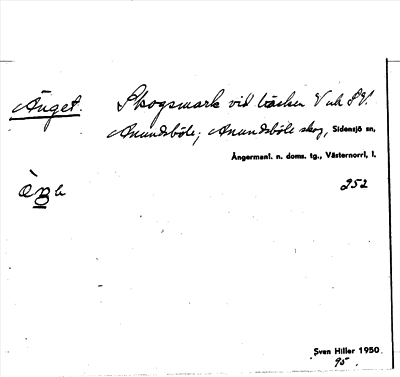 Änget. Skogsmark vid bäcken V och SV.
Anundsböle; Anundsböle skog, Sidensjö sn,
Ångermanl. n. doms. tg., Västernorrl. l.
252
Sven Hiller 1950.
95